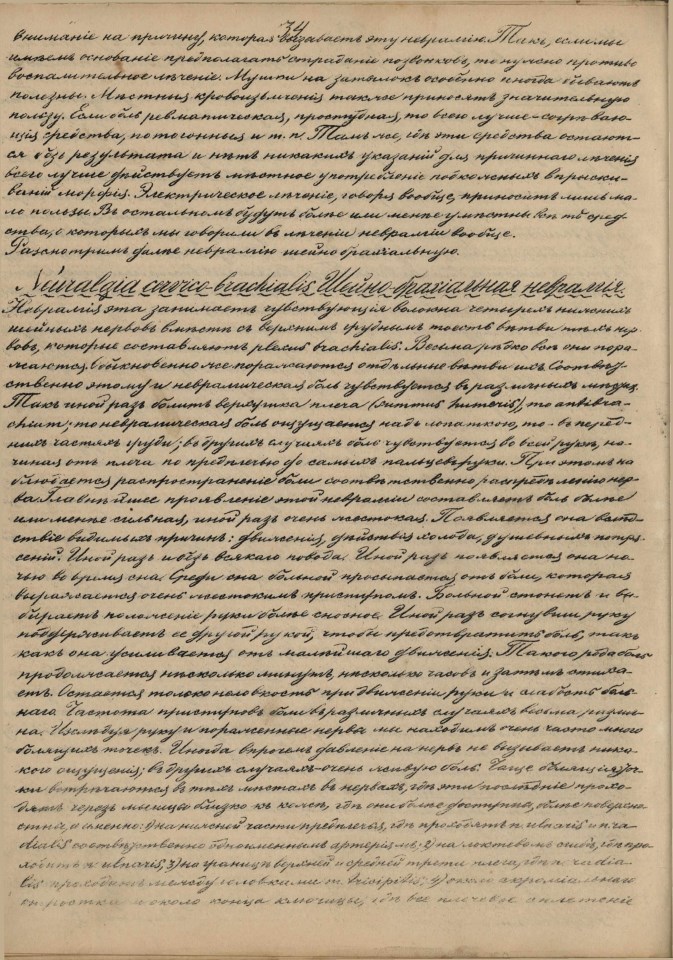 34
вниманіе на причину, которая вызываетъ эту невралгію. Такъ, если мы
имѣемъ основаніе предполагать страданіе позвонковъ, то нужно противо
воспалительное лѣченіе. Мушки на затылокъ особенно иногда бываютъ
полезны. Мѣстныя кровоизвлеченія также приносятъ значительную
пользу. Если боль ревматическая, простудная, то всего лучше согрѣваю-
щія средства, потогонныя и т. п. Тамъ же, гдѣ эти средства остают-
ся безъ результата и нѣтъ никакихъ указаній для причиннаго лѣченія
всего лучше дѣйствуетъ мѣстное употребленіе подкожныхъ впрыски-
ваній морфія. Электрическое лѣченіе, говоря вообще, приноситъ лишь ма-
ло пользы. Въ остальномъ будутъ болѣе или менѣе умѣстны всѣ тѣ сред-
ства, о которыхъ мы говорили въ лѣченіи невралгіи вообще.
Разсмотримъ далѣе невралгію шейно-брахіальную.
Neuralgia cervico-brachialis Шейно-брахіальная невралгія
Невралгія эта занимаетъ чувствующія волокна четырехъ нижнихъ
шейныхъ нервовъ вмѣстѣ съ верхнимъ груднымъ то есть вѣтви тѣхъ нер-
вовъ, которые составляютъ plexus brachialis. Весьма рѣдко всѣ они пора-
жаются. Обыкновенно же поражаются отдѣльныя вѣтви ихъ. Соотвѣт-
ственно этому и невралгическая боль чувствуется въ различныхъ мѣстахъ.
Такъ иной разъ болитъ верхушка плеча (summus humeris), то antibra-
chium; то невралгическая боль ощущается надъ лопаткою, то въ перед-
нихъ частяхъ груди; въ другихъ случаяхъ боль чувствуется во всей рукѣ, на-
чиная отъ плеча по предплечью до самыхъ пальцевъ руки. При этомъ на
блюдается распространеніе боли соотвѣтственно распредѣленію нер-
ва. Главнѣйшее проявленіе этой невралгіи составляетъ боль болѣе
или менѣе сильная, иной разъ очень жестокая. Появляется она вслѣд-
ствіе видимыхъ причинъ: движенія, дѣйствія холода, душевныхъ потря-
сеній. Иной разъ и безъ всякаго повода. Иной разъ появляется она но-
чью во время сна. Среди сна больной просыпается отъ боли, которая
выражается очень жестокимъ приступомъ. Больной стонетъ и вы-
бираетъ положеніе руки болѣе сносное. Иной разъ согнувши руку
поддерживаетъ ее другой рукой, чтобы предотвратить боль, такъ
какъ она усиливается отъ малѣйшаго движенія. Такого рода боль
продолжается нѣсколько минутъ, нѣсколько часовъ и затѣмъ стиха-
етъ. Остается только неловкость при движеніи руки и слабость боль-
наго. Частота приступовъ боли въ различныхъ случаяхъ весьма различ-
на. Изслѣдуя руку и пораженные нервы мы находимъ очень часто много
болящихъ точекъ. Иногда впрочемъ давленіе на нервъ не вызываетъ ника-
кого ощущенія; въ другихъ случаяхъ-очень живую боль. Чаще болящія точ-
ки встрѣчаются въ тѣхъ мѣстахъ въ нервахъ, гдѣ эти послѣдніе прохо-
дятъ черезъ мышцы близко къ кожѣ, гдѣ они болѣе доступны, болѣе поверхно-
стны, а именно: 1) на нижней части предплечья, гдѣ проходятъ n. ulnaris и n. ra-
dialis соотвѣтственно одноименнымъ артеріямъ; 2) на локтевомъ сгибѣ, гдѣ про-
ходитъ n. ulnaris; 3) на границѣ верхней и средней трети плеча, гдѣ n. radia-
lis проходитъ между головками m. tricipitis; 4) около акроміальнаго
отростка и около конца ключицы, гдѣ все плечевое сплетеніе